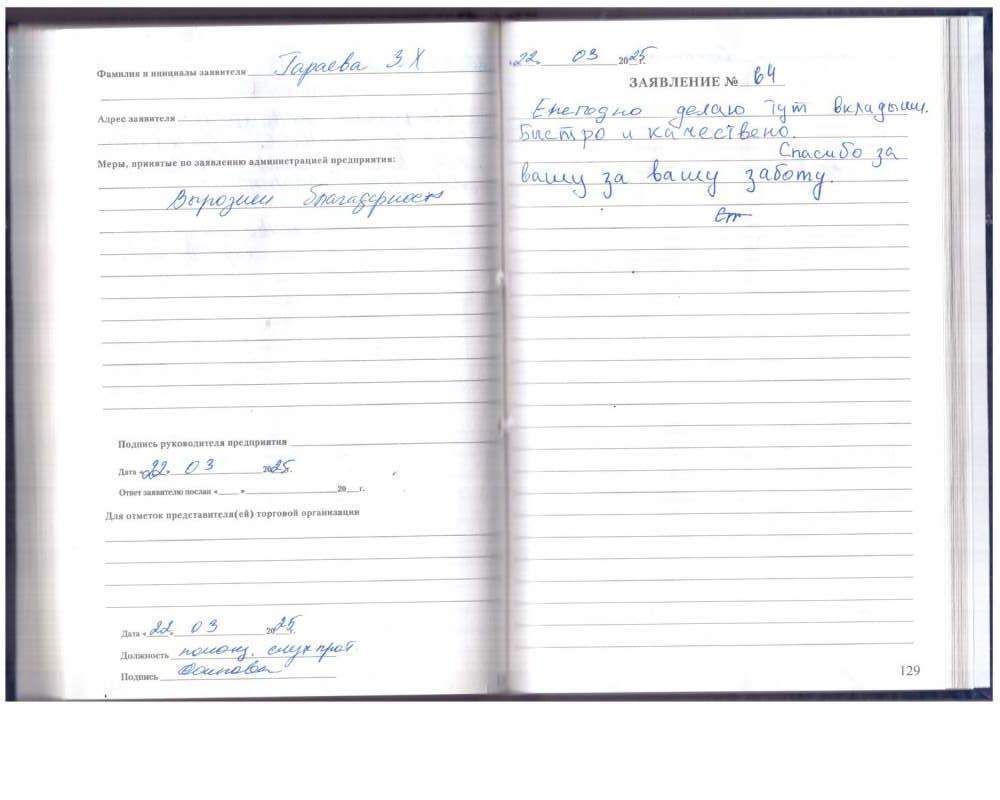 Фамилия и инициалы заявителя Гараева З.Х
Адрес заявителя
Меры, принятые по заявлению администрацией предприятия:
Вырозили благадарность
Подпись руководителя предприятия
Дата «22» 03 2025г.
Ответ заявителю послан «    »                    20    г.
Для отметок представителя(ей) торговой организации
Дата «22» 03 2025г.
Должность помощ. слухпрот
Подпись
«22» 03 2025г.
ЗАЯВЛЕНИЕ № 64
Ежегодно делаю тут вкладыши.
Быстро и качествено.
Спасибо за
вашу за вашу заботу.
129